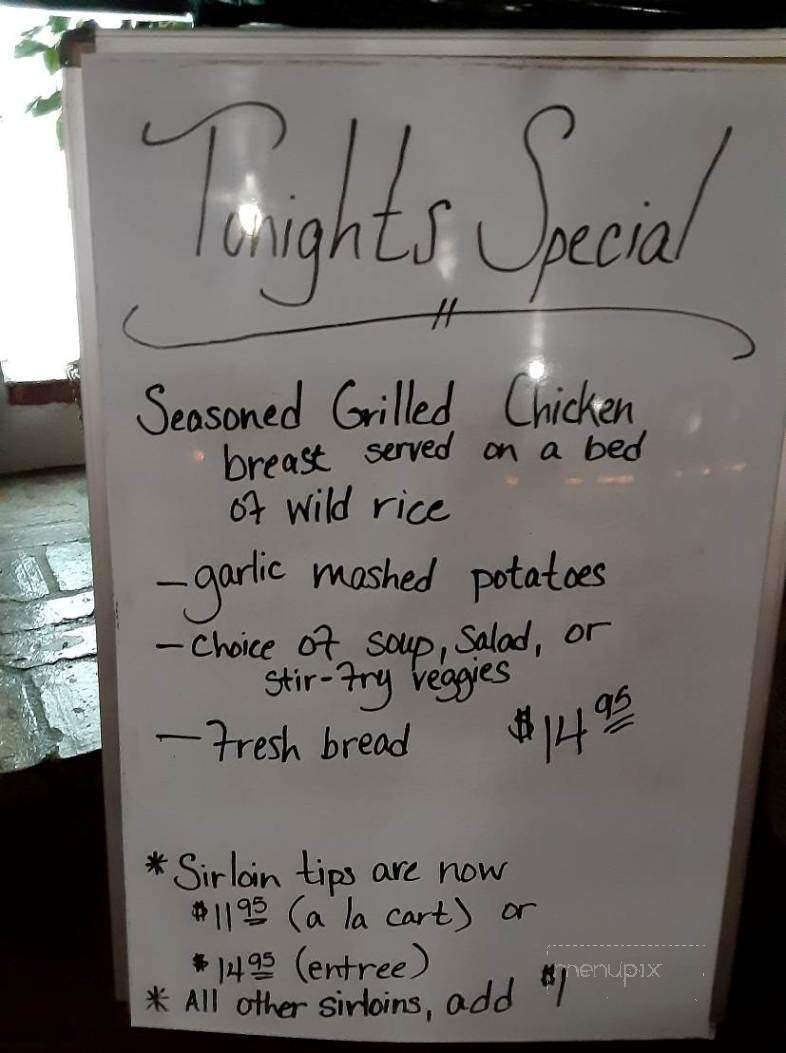 Tonights Special
Seasoned Grilled Chicken
breast served on a bed
of wild rice
- garlic mashed potatoes
- choice of soup, salad, or
stir-fry veggies
- Fresh bread $14 95
* Sirloin tips are now
$11 95 (a la cart) or
$14 95 (entree)
* All other sirloins, add $1
menupix